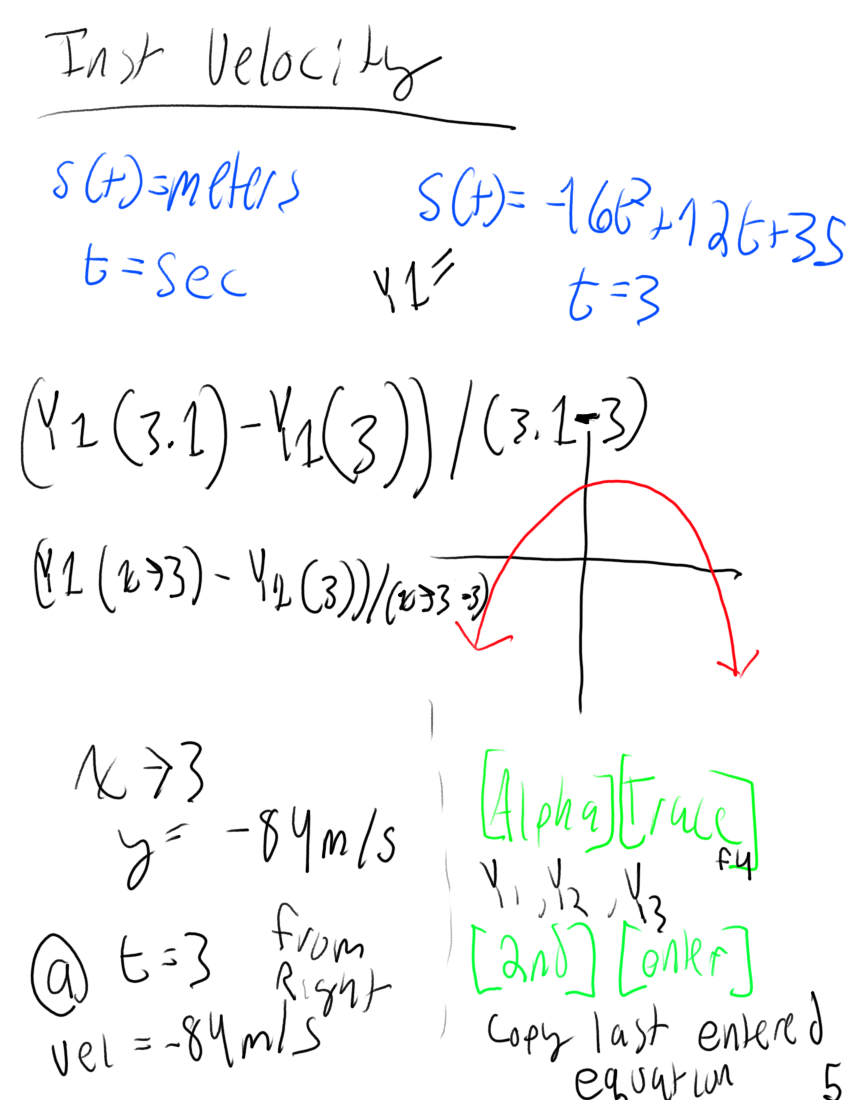 Inst Velocity
s(t)=meters
t=sec
s(t)= -16t²+12t+35
Y1=
t=3
(Y1(3.1)-Y1(3))/(3.1-3)
(Y1(x→3)-Y1(3))/(x→3-3)
x→3
y= -84m/s
@ t=3 from Right
vel = -84m/s
[Alpha][trace]
f4
Y₁, Y₂, Y₃
[2nd] [enter]
copy last entered
equation
5